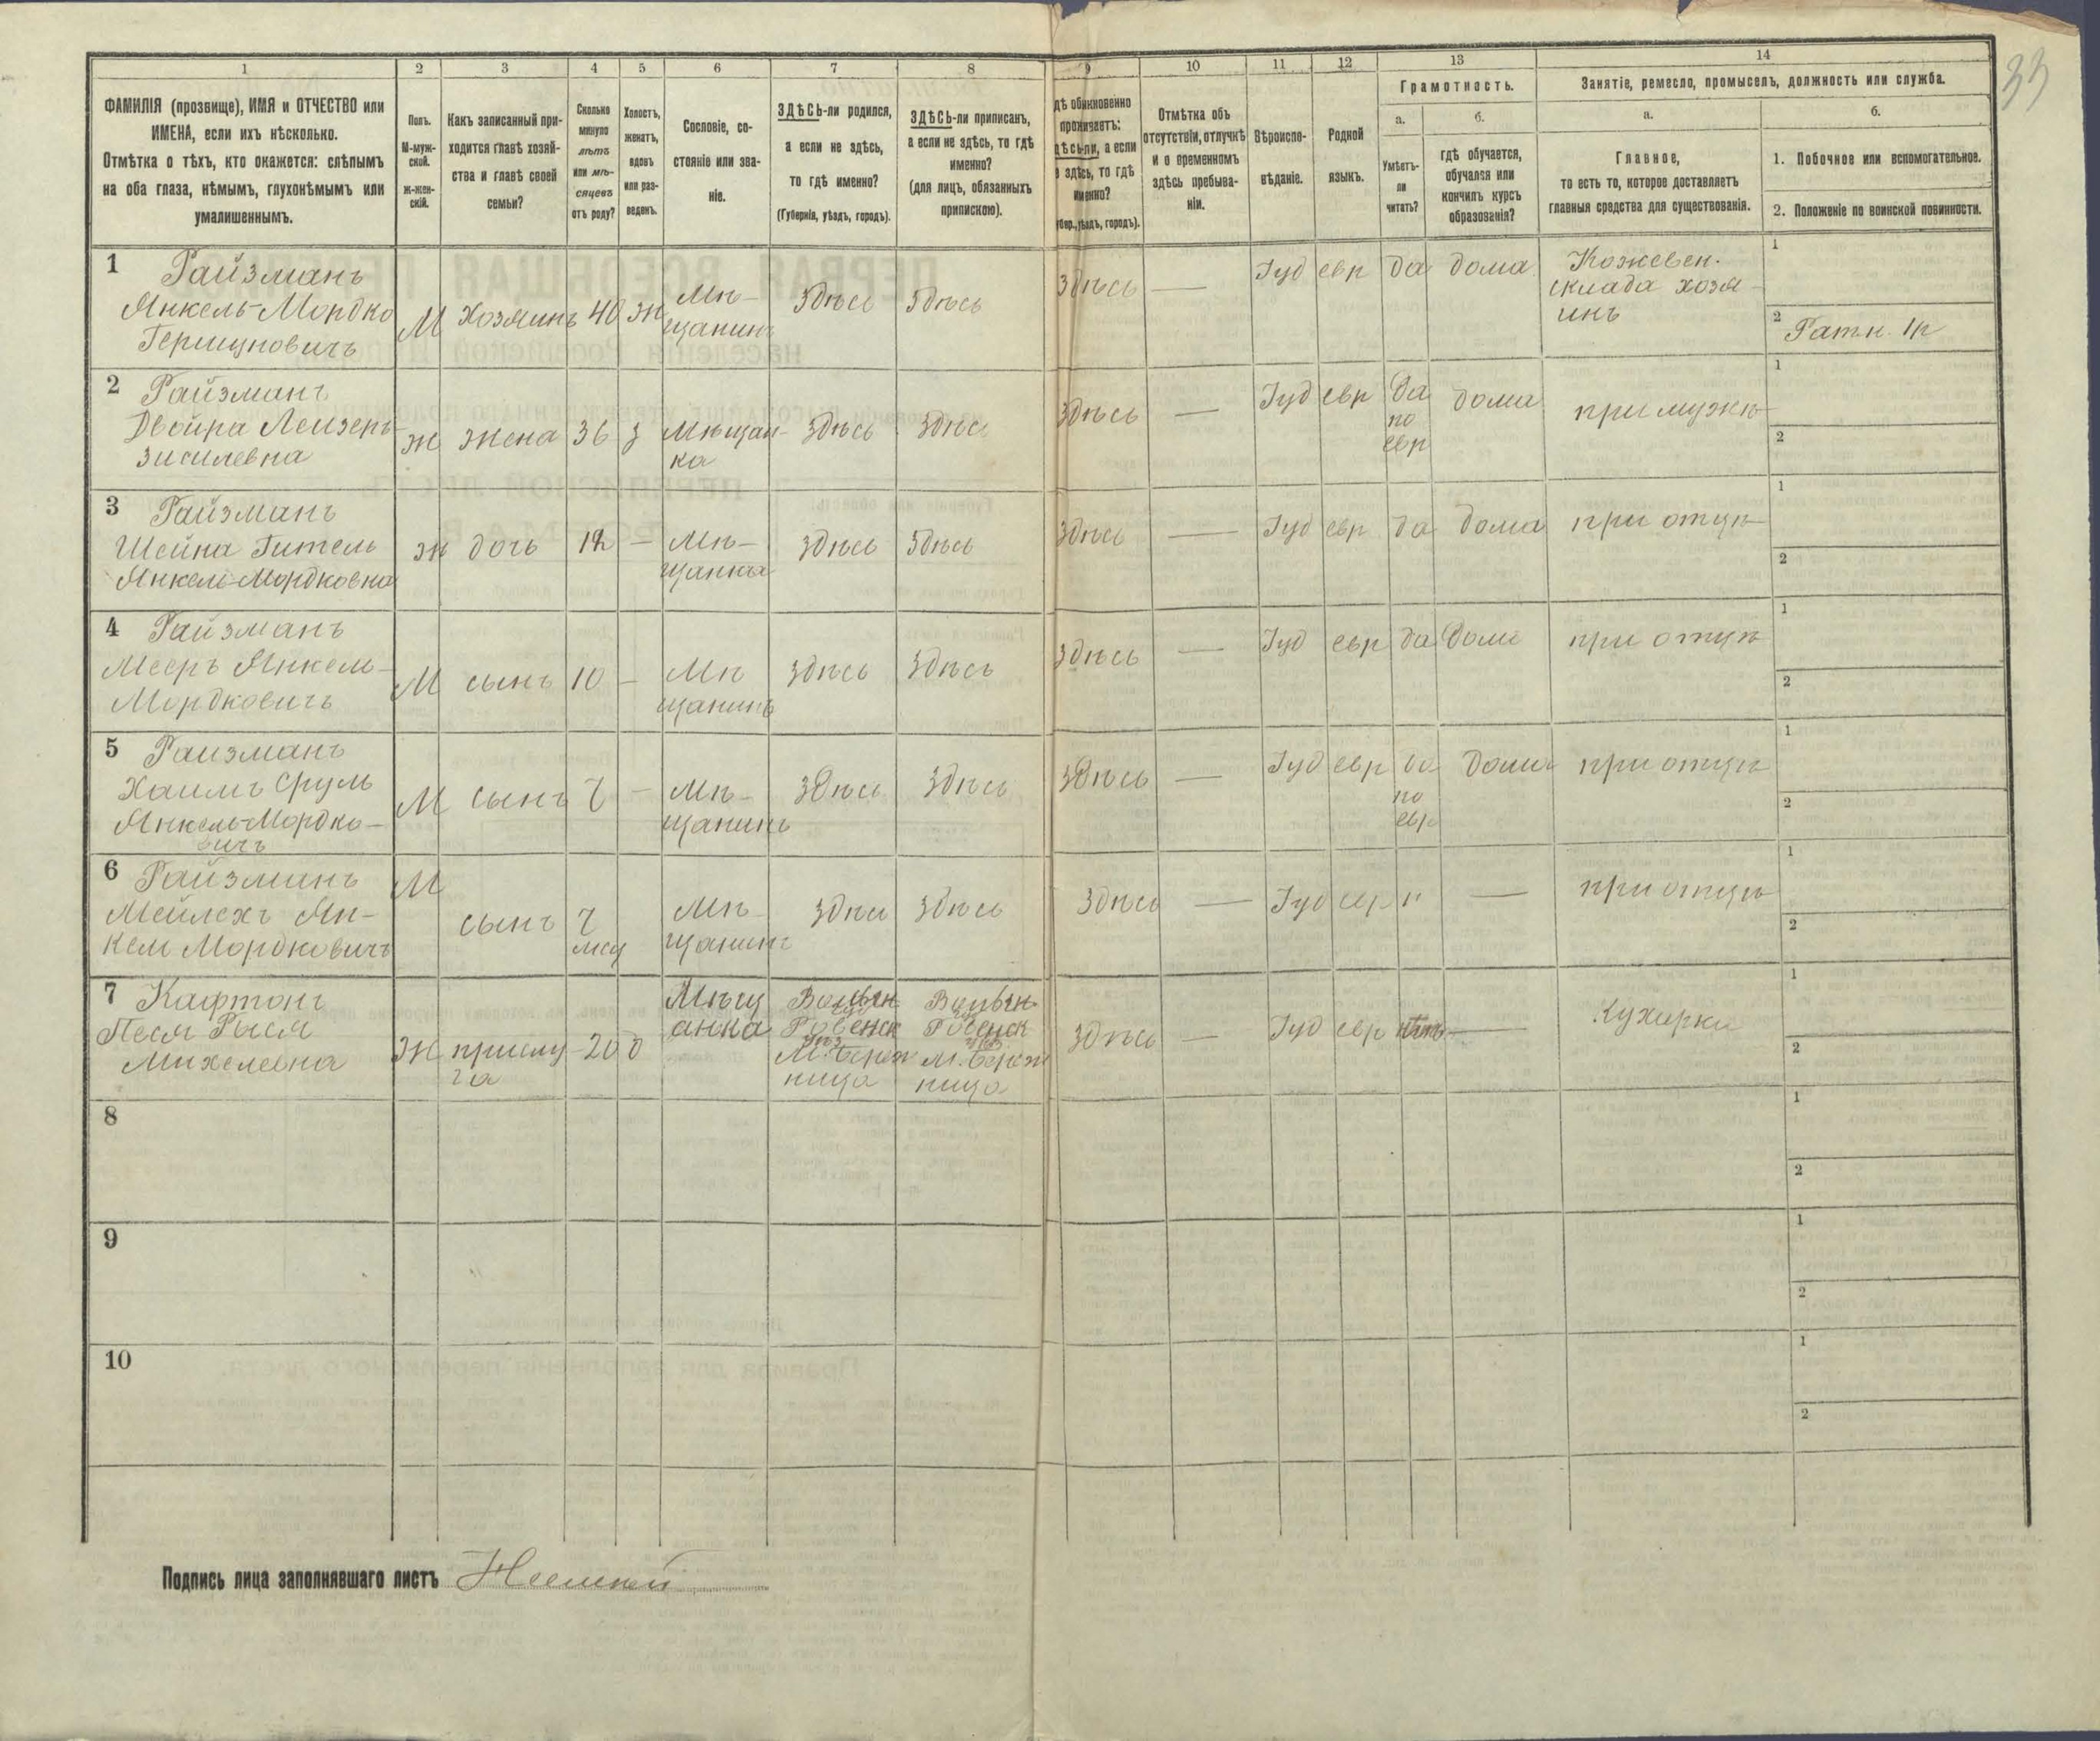 33
1 2 3 4 5 6 7 8 9 10 11 12 13 14
ФАМИЛІЯ (прозвище), ИМЯ и ОТЧЕСТВО или
ИМЕНА, если ихъ нѣсколько.
Отмѣтка о тѣхъ, кто окажется: слѣпымъ
на оба глаза, нѣмымъ, глухонѣмымъ или
умалишеннымъ.
Полъ.
М-муж-
ской.
ж-жен-
скій.
Какъ записанный при-
ходится главѣ хозяй-
ства и главѣ своей
семьи?
Сколько
минуло
лѣтъ
или мѣ-
сяцевъ
отъ роду?
Холостъ,
женатъ,
вдовъ
или раз-
веденъ.
Сословіе, со-
стояніе или зва-
ніе.
ЗДѢСЬ-ли родился,
а если не здѣсь,
то гдѣ именно?
(Губернія, уѣздъ, городъ).
ЗДѢСЬ-ли приписанъ,
а если не здѣсь, то гдѣ
именно?
(для лицъ, обязанныхъ
припискою).
дѣ обыкновенно
проживаетъ:
дѣсь-ли, а если
е здѣсь, то гдѣ
именно?
убер., уѣздъ, городъ).
Отмѣтка объ
отсутствіи, отлучкѣ
и о временномъ
здѣсь пребыва-
ніи.
Вѣроиспо-
вѣданіе.
Родной
языкъ.
Грамотность.
а.
Умѣетъ-
ли
читать?
б.
гдѣ обучается,
обучался или
кончилъ курсъ
образованія?
Занятіе, ремесло, промыселъ, должность или служба.
а.
Главное,
то есть то, которое доставляетъ
главныя средства для существованія.
б.
1. Побочное или вспомогательное.
2. Положеніе по воинской повинности.
1 Райзманъ
Янкель-Мордко
М Хозяинъ 40 ж Мѣ-
щанинъ
здѣсь здѣсь здѣсь — Іуд евр да дома
Кожевен.
склада хозя-
инъ
1
2 Ратн. 1р
2 Райзманъ
Двойра Лейзеръ-
зисилевна
ж жена 36 з Мѣщан-
ка
здѣсь здѣсь здѣсь — Іуд евр да
по
евр
дома при мужѣ
1
2
3 Райзманъ
Шейна Гитель
Янкель-Мордковна
ж дочь 12 — Мѣ-
щанка
здѣсь здѣсь здѣсь — Іуд евр да дома при отцѣ
1
2
4 Райзманъ
Мееръ Янкель-
Мордковичъ
М сынъ 10 — Мѣ
щанинъ
здѣсь здѣсь здѣсь — Іуд евр да дома при отцѣ
1
2
5 Райзманъ
Хаимъ Сруль
Янкель-Мордко-
вичъ
М сынъ 7 — Мѣ-
щанинъ
здѣсь здѣсь здѣсь — Іуд евр да
по
евр
дома при отцѣ
1
2
6 Райзманъ
Мейлехъ Ян-
кель Мордковичъ
М сынъ 7
мсц
Мѣ-
щанинъ
здѣсь здѣсь здѣсь — Іуд евр — при отцѣ
1
2
7 Кафтонъ
Песя Рыся
Михелевна
Ж прислу-
га
20 д
Мѣщ
анка
Волын
Ровенск
М. Береж
ница
Волын
Ровенск
М. Береж
ница
здѣсь — Іуд евр нѣтъ — Кухарка
1
2
8
1
2
9
1
2
10
1
2
Подпись лица заполнявшаго листъ